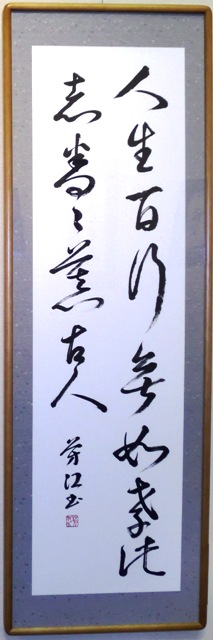 人生百行無如孝此
志眷々慕古人
芳江書